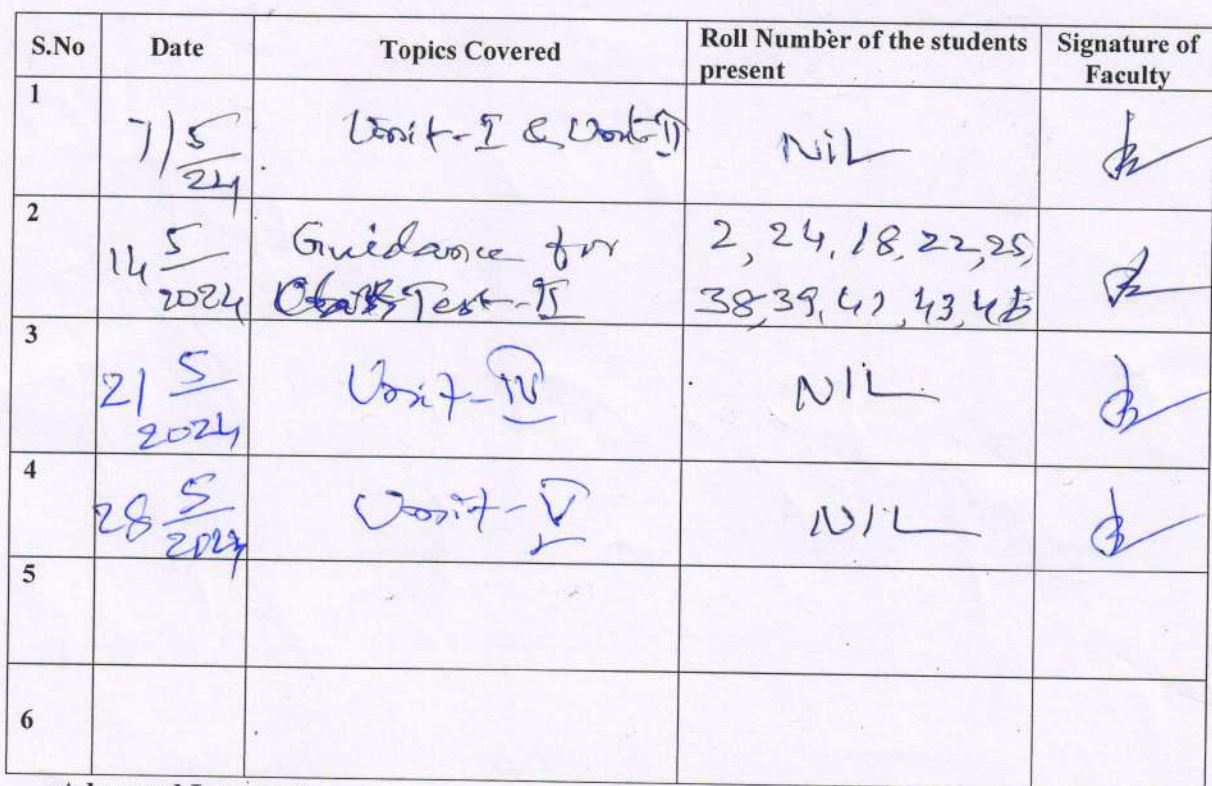 S.No Date Topics Covered Roll Number of the students present Signature of Faculty
1 7/5/24 Unit-I & Unit-II NiL
2 14 5/2024 Guidance for Test-II 2, 24, 18, 22, 25, 38, 39, 43
3 21 5/2024 Unit-IV NIL
4 28 5/2024 Unit-V NIL
5
6